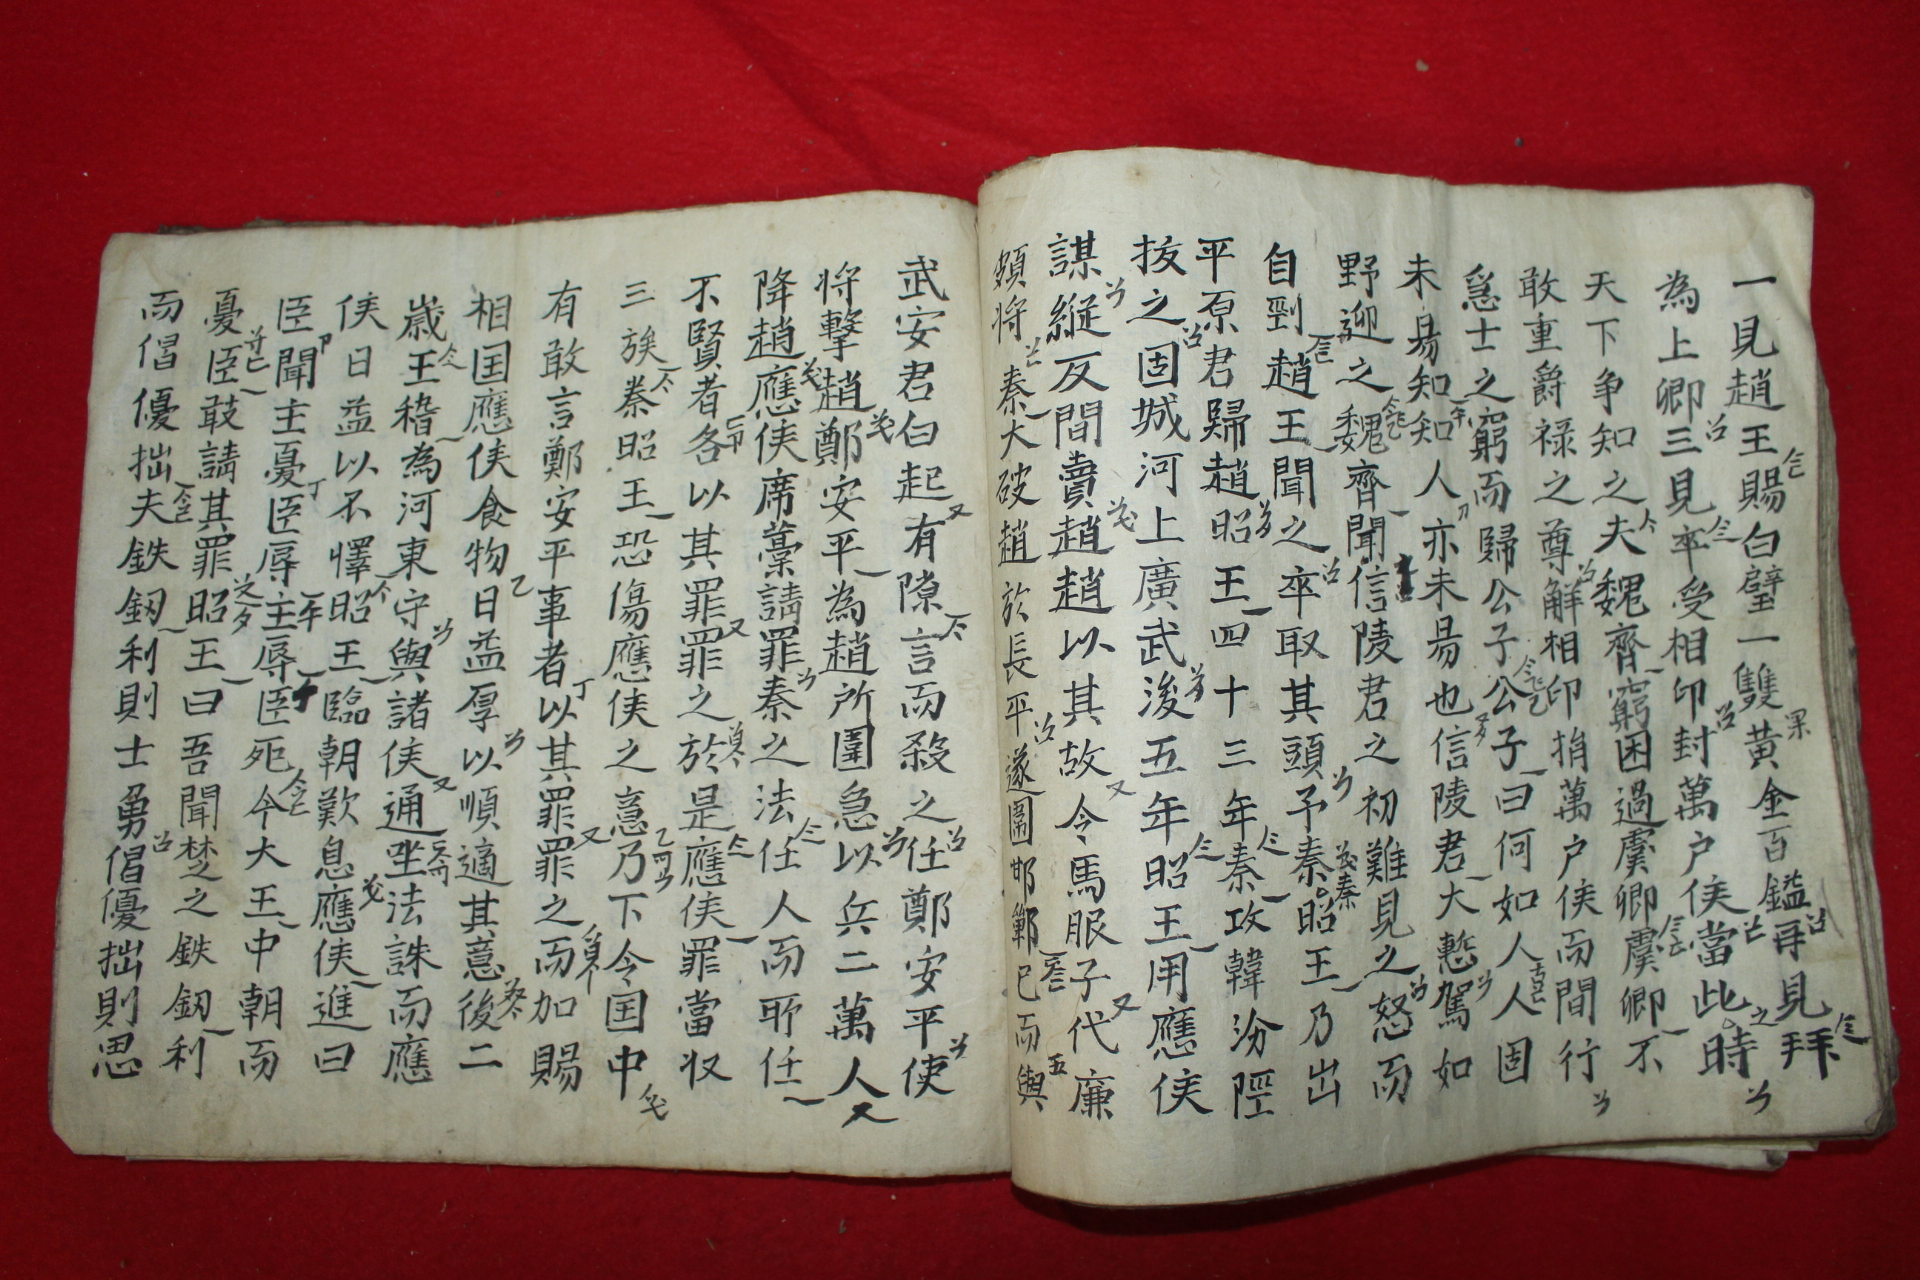 一見趙王賜白璧一雙黃金百鎰再見拜
為上卿三見卒受相印封萬户侯當此時
天下争知之夫魏齊窮困過虞卿虞卿不
敢重爵祿之尊解相印捐萬户侯而間行
急士之窮而歸公子公子曰何如人人固
未易知知人亦未易也信陵君大慙駕如
野迎之魏齊聞信陵君之初難見之怒而
自剄趙王聞之卒取其頭予秦秦昭王乃出
平原君歸趙昭王四十三年秦攻韓汾陘
拔之固城河上廣武後五年昭王用應侯
謀縱反間賣趙趙以其故令馬服子代廉
頗將秦大破趙於長平遂圍邯鄲已而與
武安君白起有隙言而殺之任鄭安平使
將擊趙鄭安平為趙所圍急以兵二萬人
降趙應侯席藁請罪秦之法任人而所任
不賢者各以其罪罪之於是應侯罪當收
三族秦昭王恐傷應侯之意乃下令国中
有敢言鄭安平事者以其罪罪之而加賜
相国應侯食物日益厚以順適其意後二
歲王稽為河東守與諸侯通坐法誅而應
侯日益以不懌昭王臨朝歎息應侯進曰
臣聞主憂臣辱主辱臣死今大王中朝而
憂臣敢請其罪昭王曰吾聞楚之鉄釼利
而倡優拙夫鉄釼利則士勇倡優拙則思